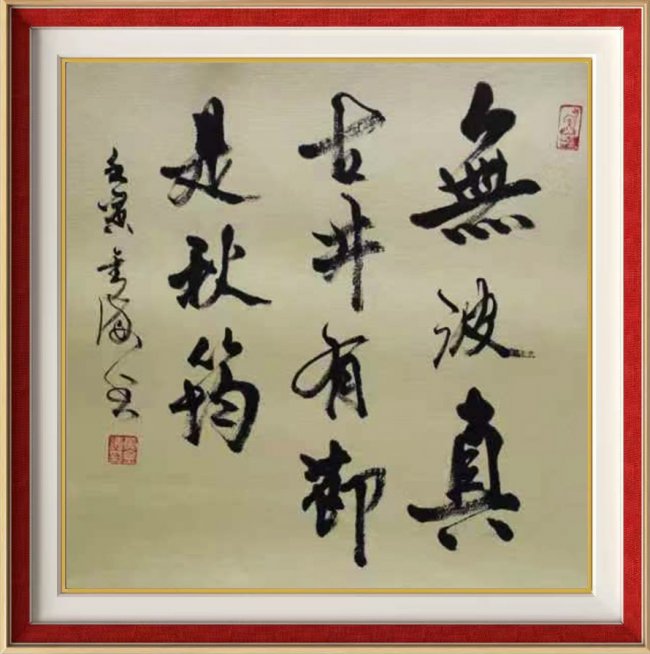 無波真
古井有節
是秋筠
壬寅